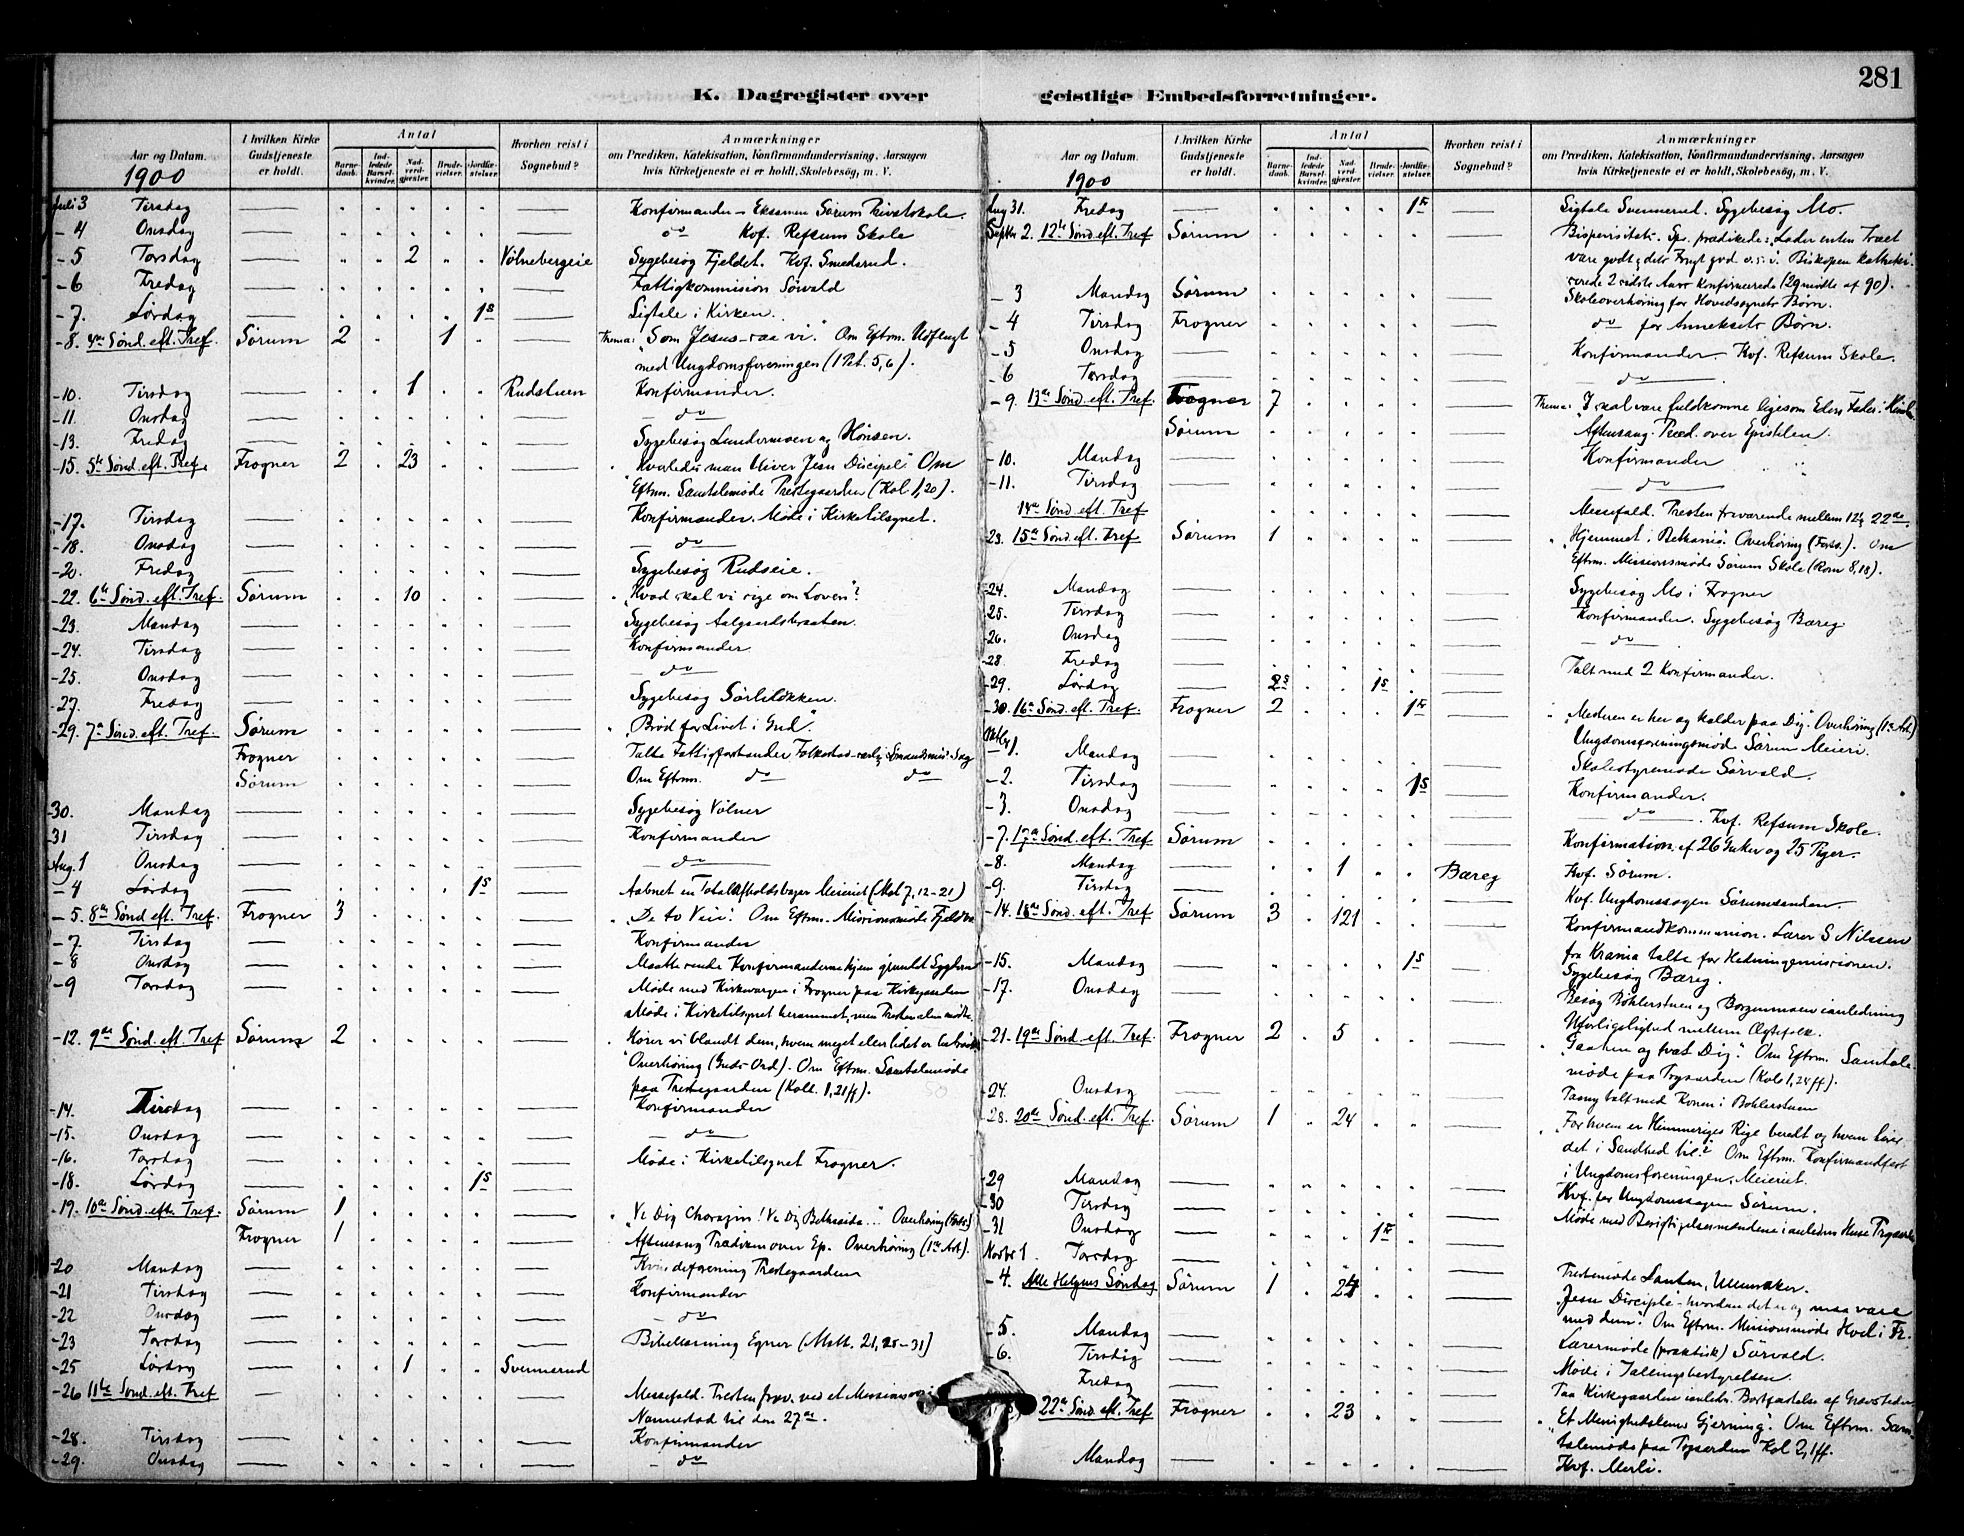 281
K. Dagregister over geistlige Embedsforretninger.
Aar og Datum. I hvilken Kirke Gudstjeneste er holdt. Antal Barne-daab. Ind-ledede Barsel-kvinder. Nad-verd-gjester. Brude-vielser. Jordfæ-stelser. Hvorhen reist i Sognebud? Anmærkninger
om Prædiken, Katekisation, Konfirmandundervisning, Aarsagen
hvis Kirketjeneste ei er holdt, Skolebesøg, m. V.
1900
Juli 3 Tirsdag — Konfirmander – Eksamen Sørum Privatskole.
- 4 Onsdag — do Kvf. Refsum Skole
- 5 Torsdag — 2 Vølnebergeie Sygebesøg Fjeldet. Kvf. Smedsrud.
- 6 Fredag — Fattigkommission Sørvald
- 7. Lørdag — 1 S — Ligtale i Kirken.
- 8. 4de Sønd. eft. Tref. Sørum 2 1 Thema: "Som Jesus – saa vi". Om Eftm. Udflugt
med Ungdomsforeningen (1 Pet. 5,6).
- 10. Tirsdag — 1 Rudstuen Konfirmander.
- 11. Onsdag — do
- 13. Fredag — Sygebesøg Lundermoen og Hønsen.
- 15. 5te Sønd. eft. Tref. Frogner 2 23 "Hvorledes man bliver Jesu Discipel" Om
Eftm. Samtalemøde Prestegaarden (Kol. 1,20).
- 17. Tirsdag — Konfirmander. Møde i Kirketilsynet.
- 18. Onsdag — do
- 20. Fredag — Sygebesøg Rudseie.
- 22. 6te Sønd. eft. Tref. Sørum 10 "Hvad skal vi sige om Loven"?
- 23. Mandag — Sygebesøg Aalgaardsbraaten.
- 24. Tirsdag — Konfirmander
- 25. Onsdag — do
- 27. Fredag — Sygebesøg Sørliløkken.
- 29. 7de Sønd. eft. Tref. Sørum "Brød for Livet i Gud".
Frogner Talte Fattigforstander Folkestad
Sørum Om Eftm. do do
- 30. Mandag — Sygebesøg Vølner
31 Tirsdag — Konfirmander
Aug. 1 Onsdag — do
- 4 Lørdag — 1 S — Aabnet en Totalafholdsbazar Meieriet (Mat 7, 12-21)
- 5. 8de Sønd. eft. Tref. Frogner 3 "De to Veie". Om Eftm. Missionsmøde
- 7. Tirsdag — Konfirmander
- 8 Onsdag — Maatte sende Konfirmanderne hjem grundet Sygdom
- 9 Torsdag — Møde med Kirkevergen i Frogner paa Kirkegaarden
Møde i Kirketilsynet berammet, men Presten alene mødte.
- 12. 9de Sønd. eft. Tref Sørum 2 Hører vi blandt dem, hvem meget eller lidet er
Overhøring (Guds Ord). Om Eftm. Samtalemøde
paa Prestegaarden (Koll. 1,21ff).
- 14. Tirsdag — Konfirmander
- 15. Onsdag — do
- 16. Torsdag — Møde i Kirketilsynet Frogner.
- 18. Lørdag — 1 S
- 19. 10de Sønd. eft. Tref. Sørum 1 "Ve Dig Chorazin! Ve Dig Bethsaida..." Overhøring
Frogner 1 Aftensang Prædiken over Ep. Overhøring (1ste Art).
- 20 Mandag — Kvindeforening Prestegaarden
- 21 Tirsdag — Konfirmander
- 22 Onsdag — do
- 23 Torsdag — Bibellæsning Egner (Matt. 21, 28-31)
- 25 Lørdag — 1 Svennerud
- 26 11te Sønd. eft. Tref — Messefald. Presten frav. ved et
Nannestad til den 27de.
- 28. Tirsdag — Konfirmander
- 29. Onsdag — do
Aar og Datum. I hvilken Kirke Gudstjeneste er holdt. Antal Barne-daab. Ind-ledede Barsel-kvinder. Nad-verd-gjester. Brude-vielser. Jordfæ-stelser. Hvorhen reist i Sognebud? Anmærkninger
om Prædiken, Katekisation, Konfirmandundervisning, Aarsagen
hvis Kirketjeneste ei er holdt, Skolebesøg, m. V.
1900
Aug 31. Fredag — 1 F — Ligtale Svennerud. Sygebesøg Mo.
Septbr 2. 12te Sønd. eft. Tref Sørum — Bispevisitats. Sp. prædikede: "Lader enten Træet
være godt & dets Frugt god o.s.v. Biskopen katheki-
serede 2 sidste Aars Konfirmerede (29 mødte af 90).
- 3 Mandag Sørum Skoleoverhøring for Hovedsognets Børn.
- 4 Tirsdag Frogner do for Anneksets Børn.
- 5 Onsdag — Konfirmander – Kvf. Refsum Skole.
- 6 Torsdag — do
- 9. 13de Sønd. eft. Tref. Frogner 7 Thema: "I skal være fuldkomne ligesom Eders Fader i Himlen
Sørum Aftensang. Præd. over Epistlen.
- 10. Mandag — Konfirmander
- 11. Tirsdag — do
14de Sønd eft. Tref Messefald. Presten fraværende mellem 12 & 22de.
23. 15de Sønd. eft. Tref Sørum 1 "Hjemmet i Bethania" Overhøring (Fors.). Om
Eftm. Missionsmøde Sørum Skole (Rom 8,18).
- 24. Mandag — Sygebesøg Mo i Frogner
- 25. Tirsdag — Konfirmander. Sygebesøg Bæreg
- 26. Onsdag — do
- 28. Fredag — Talt med 2 Konfirmander.
- 29. Lørdag — 2 S 1 S
- 30. 16de Sønd. eft. Tref. Frogner 2 1 F "Mesteren er her og kalder paa Dig". Overhøring (1ste Art)
Ungdomsforeningsmøde Sørum Meieri.
Oktbr 1. Mandag — Skolestyremøde Sørvald.
- 2. Tirsdag — 1 S Konfirmander.
- 3. Onsdag — do. Kvf. Refsum Skole.
- 7. 17de Sønd. eft. Tref Sørum Konfirmation af 26 Gutter og 25 Piger.
- 8. Mandag — 1 Bæreg Kvf. Sørum.
- 9. Tirsdag — Kvf. Ungdomssagen Sørumsanden.
- 14. 18de Sønd. eft. Tref Sørum 3 121 Konfirmandkommunion. Lærer S Nilssen
fra Krania talte for Hedningemissionen.
- 15. Mandag — 1 S — Sygebesøg Bæreg.
- 17. Onsdag — Besøg Bøhlerstuen og Borgenmoen i anledning
Uforligelighed mellem Ægtefolk.
21. 19de Sønd. eft. Tref. Frogner 2 5 "Gaa hen og tvæt Dig". Om Eftm. Samtale-
møde paa Prgaarden (Kol. 1,24ff).
- 24. Onsdag — talt med Konen i Bøhlerstuen
- 28. 20de Sønd. eft. Tref. Sørum 1 24 "For hvem er Himmeriges Rige beredt og hvem
det i Sandhed til?" Om Eftm. Konfirmandfest
i Ungdomsforeningen, Meieriet.
- 29 Mandag — Kvf. for Ungdomssagen Sørum.
- 30 Tirsdag — Møde med Besigtigelsesmændene i anledn
- 31 Onsdag — 1 F
Novbr 1. Torsdag — Prestemøde Ullensaker.
- 4. Alle Helgens Søndag Sørum 1 24 "Jesu Disciple – hvordan det er og maa være
med dem". Om Eftm. Missionsmøde Hvel i Fr.
- 5. Mandag — Lærermøde (praktisk) Sørvald.
- 6. Tirsdag — Møde i Tællingsbestyrelsen.
Fredag — Paa Kirkegaarden i anledn. Bortfæstelse af Gravsteder
22de Sønd. eft. Tref Frogner 23 "Et Menighedslems Gjerning". Om Eftm. Sam-
talemøde paa Prgaarden Kol 2,1ff.
Mandag — Kvf. Merli.